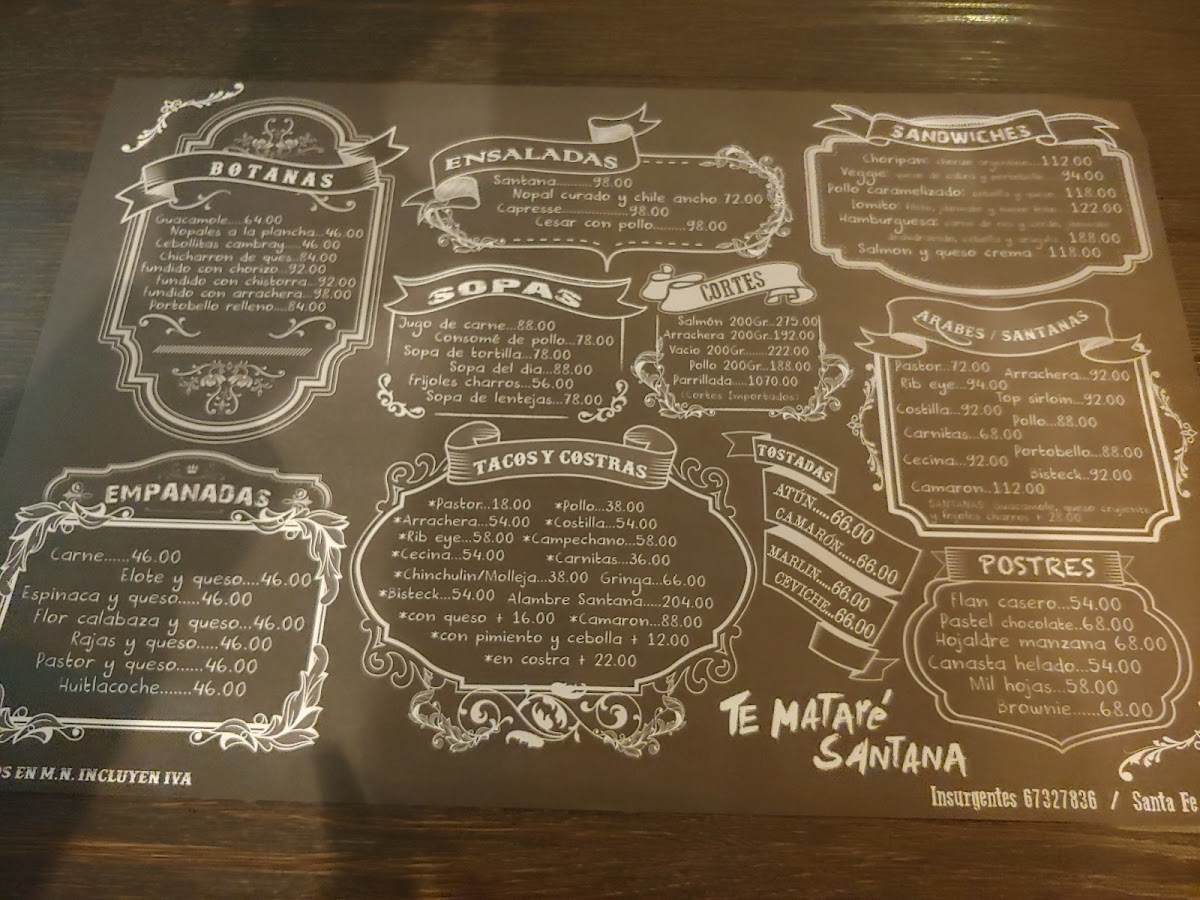 BOTANAS
Guacamole....64.00
Nopales a la plancha...46.00
Cebollitas cambray....46.00
Chicharron de ques..84.00
fundido con chorizo..92.00
fundido con chistorra..92.00
fundido con arrachera...98.00
Portobello relleno....84.00
ENSALADAS
Santana..........98.00
Nopal curado y chile ancho 72.00
Capresse..................98.00
Cesar con pollo.........98.00
SANDWICHES
Choripan: 112.00
Veggie: 94.00
Pollo caramelizado: 118.00
lomito: 122.00
Hamburguesa:
188.00
Salmon y queso crema 118.00
SOPAS
Jugo de carne...88.00
Consomé de pollo...78.00
Sopa de tortilla...78.00
Sopa del dia...88.00
frijoles charros...56.00
Sopa de lentejas...78.00
CORTES
Salmón 200Gr...275.00
Arrachera 200Gr..192.00
Vacio 200Gr.......222.00
Pollo 200Gr..188.00
Parrillada.....1070.00
(Cortes Importados)
ARABES / SANTANAS
Pastor...72.00 Arrachera...92.00
Rib eye...94.00 Top sirloin...92.00
Costilla...92.00 Pollo...88.00
Carnitas...68.00 Portobello...88.00
Cecina...92.00 Bisteck...92.00
Camaron...112.00
SANTANAS: Guacamole, queso crujiente
y frijoles charros + 28.00
EMPANADAS
Carne......46.00
Elote y queso....46.00
Espinaca y queso.....46.00
Flor calabaza y queso...46.00
Rajas y queso.....46.00
Pastor y queso......46.00
Huitlacoche.......46.00
TACOS Y COSTRAS
*Pastor...18.00 *Pollo...38.00
*Arrachera...54.00 *Costilla...54.00
*Rib eye...58.00 *Campechano...58.00
*Cecina...54.00 *Carnitas...36.00
*Chinchulin/Molleja...38.00 Gringa...66.00
*Bisteck...54.00 Alambre Santana.....204.00
*con queso + 16.00 *Camaron...88.00
*con pimiento y cebolla + 12.00
*en costra + 22.00
TOSTADAS
ATÚN.....66.00
CAMARÓN....66.00
MARLIN.....66.00
CEVICHE..66.00
POSTRES
Flan casero...54.00
Pastel chocolate..68.00
Hojaldre manzana 68.00
Canasta helado...54.00
Mil hojas...58.00
Brownie......68.00
TE MATARÉ
SANTANA
OS EN M.N. INCLUYEN IVA
Insurgentes 67327836 / Santa Fe